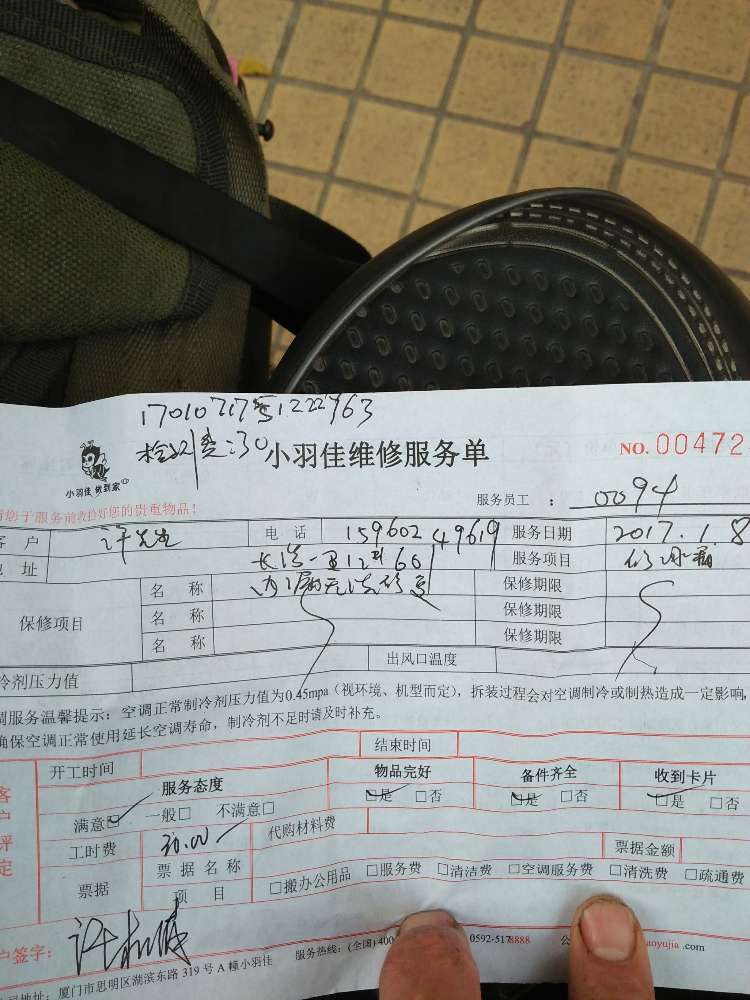 1701071751222963
检测费:30
小羽佳维修服务单
NO. 00472
小羽佳 做到家
服务员工 : 0094
您于服务前收拾好您的贵重物品!
客 户 许先生 电 话 15960249619 服务日期 2017.1.8
地 址 服务项目
保修项目 名 称 保修期限
名 称 保修期限
名 称 保修期限
冷剂压力值 出风口温度
调服务温馨提示:空调正常制冷剂压力值为0.45mpa(视环境、机型而定),拆装过程会对空调制冷或制热造成一定影响,
确保空调正常使用延长空调寿命,制冷剂不足时请及时补充。
开工时间 结束时间
客户评定
服务态度 物品完好 备件齐全 收到卡片
满意☑ 一般□ 不满意□ ☑是 □否 ☑是 □否 ☑是 □否
工时费 30.00 代购材料费
票据 票据名称 票据金额
项 目 □搬办公用品 □服务费 □清洁费 □空调服务费 □清洗费 □疏通费
户签字:
地址:厦门市思明区湖滨东路319号A幢小羽佳 服务热线:(全国)400 0592-5178888 aoyujia.com